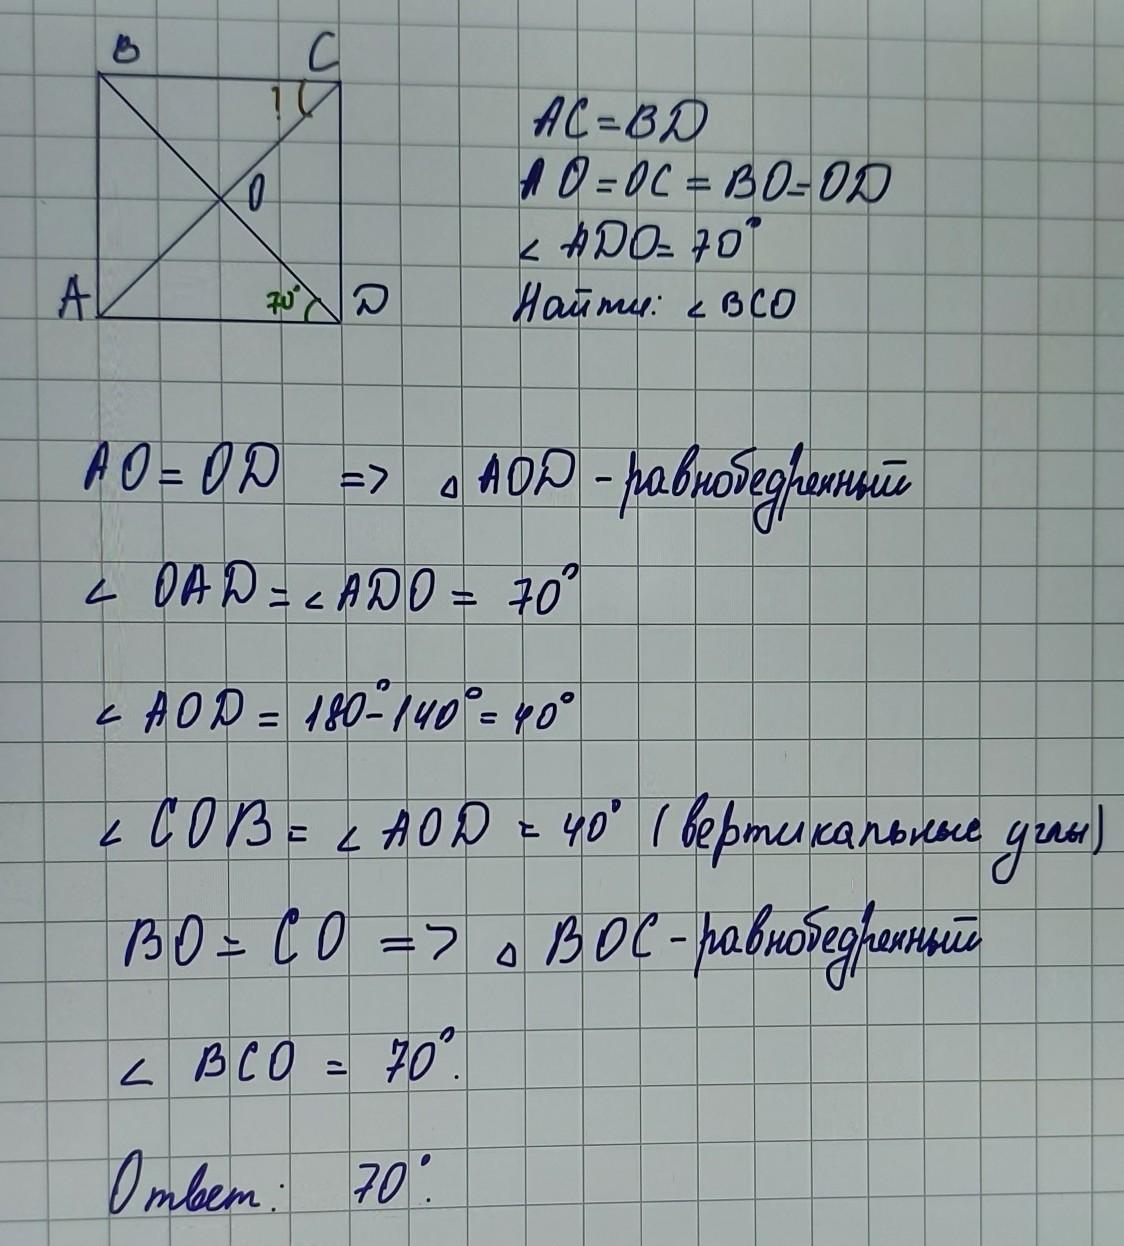 B C
? AC = BD
O AO = OC = BO = OD
∠ ADO = 70°
A 70° D Найти: ∠ BCO
AO = OD => △ AOD - равнобедренный
∠ OAD = ∠ ADO = 70°
∠ AOD = 180° - 140° = 40°
∠ COB = ∠ AOD = 40° (вертикальные углы)
BO = CO => △ BOC - равнобедренный
∠ BCO = 70°.
Ответ: 70°.